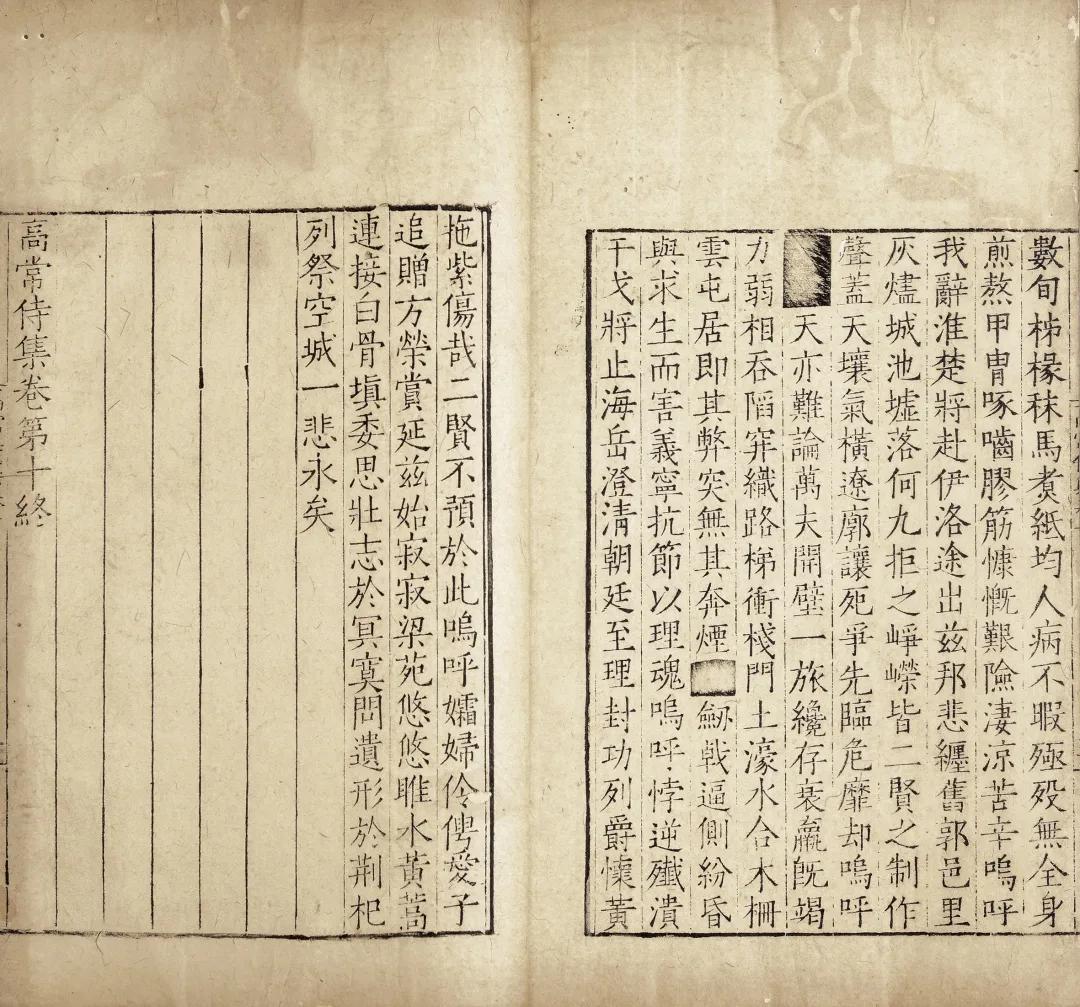 數旬柹椽秣馬煑紙均人病不暇殛殁無全身
煎熬甲冑啄嚙膠筋慷慨艱險淒涼苦辛嗚呼
我辭淮楚將赴伊洛途出茲邦悲纏舊郭邑里
灰燼城池墟落何九拒之崢嶸皆二賢之制作
聲蓋天壤氣橫遼廓讓死爭先臨危靡却嗚呼
天亦難論萬夫開壁一旅纔存衰羸旣竭
力弱相吞陷穽織路梯衝棧門土濠水合木柵
雲屯居即其弊突無其奔煙劒戟逼側紛昏
與求生而害義寧抗節以理魂嗚呼悖逆殲潰
干戈將止海岳澄清朝廷至理封功列爵懷黃
拖紫傷哉二賢不預於此嗚呼孀婦伶俜愛子
追贈方榮賞延茲始寂寂梁苑悠悠睢水黃蒿
連接白骨塡委思壯志於冥寞問遺形於荆杞
列祭空城一悲永矣
高常侍集卷第十終